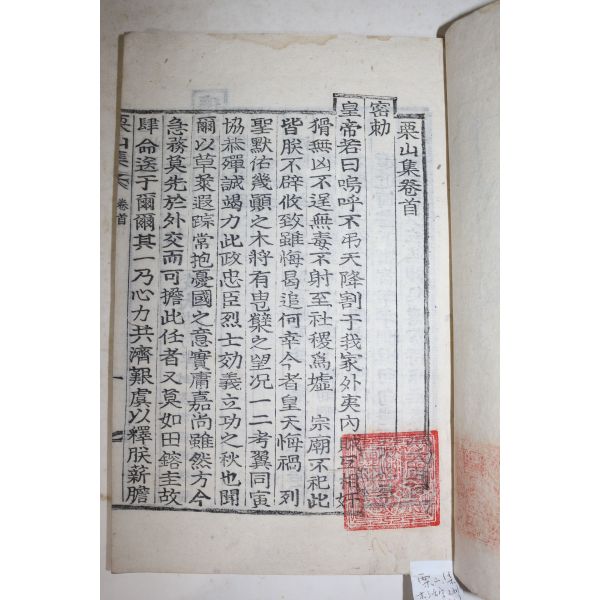 栗山集卷首
密勅
皇帝若曰嗚呼不弔天降割于我家外夷內賊互相奸
猾無凶不逞無毒不射至社稷爲墟 宗廟不祀此
皆朕不辟攸致雖悔曷追何幸今者皇天悔禍 列
聖默佑幾顚之木將有甹蘖之望况一二考翼同寅
協恭殫誠竭力此政忠臣烈士効義立功之秋也聞
爾以草萊遐踪常抱憂國之意實庸嘉尚雖然方今
急務莫先於外交而可擔此任者又莫如田鎔圭故
肆命送于爾爾其一乃心力共濟艱虞以釋朕薪膽
栗山集 卷首